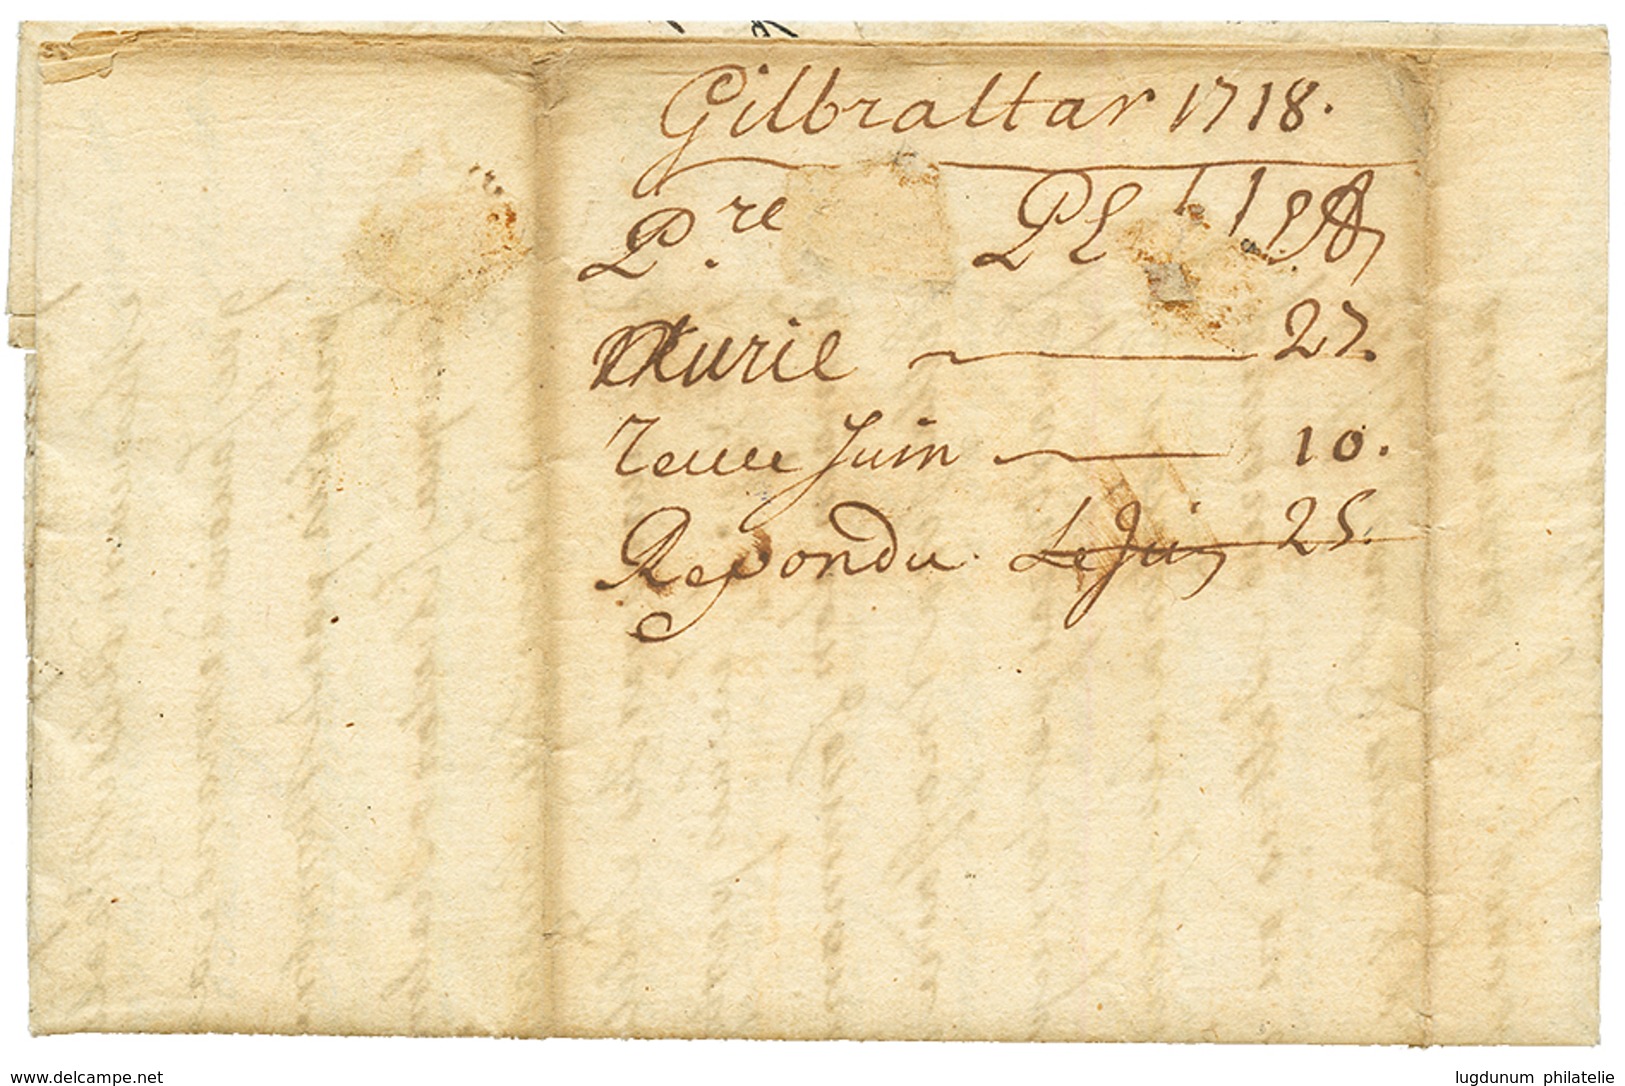 Gilbraltar 1718.
P.re
27.
receue Juin 10.
Repondu Le Juin 25.
www.delcampe.net
lugdunum philatelie